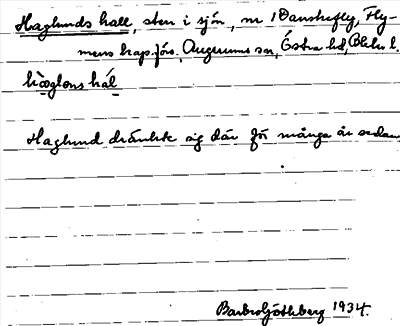 Haglunds hall, sten i sjön, nr 1 Danskefly, Fly-
mens kap.förs. Augerums sn, Östra hd, Blek. l.
hægløns hál
Haglund dränkte sig där för många år sedan
Barbro Götheberg 1934.